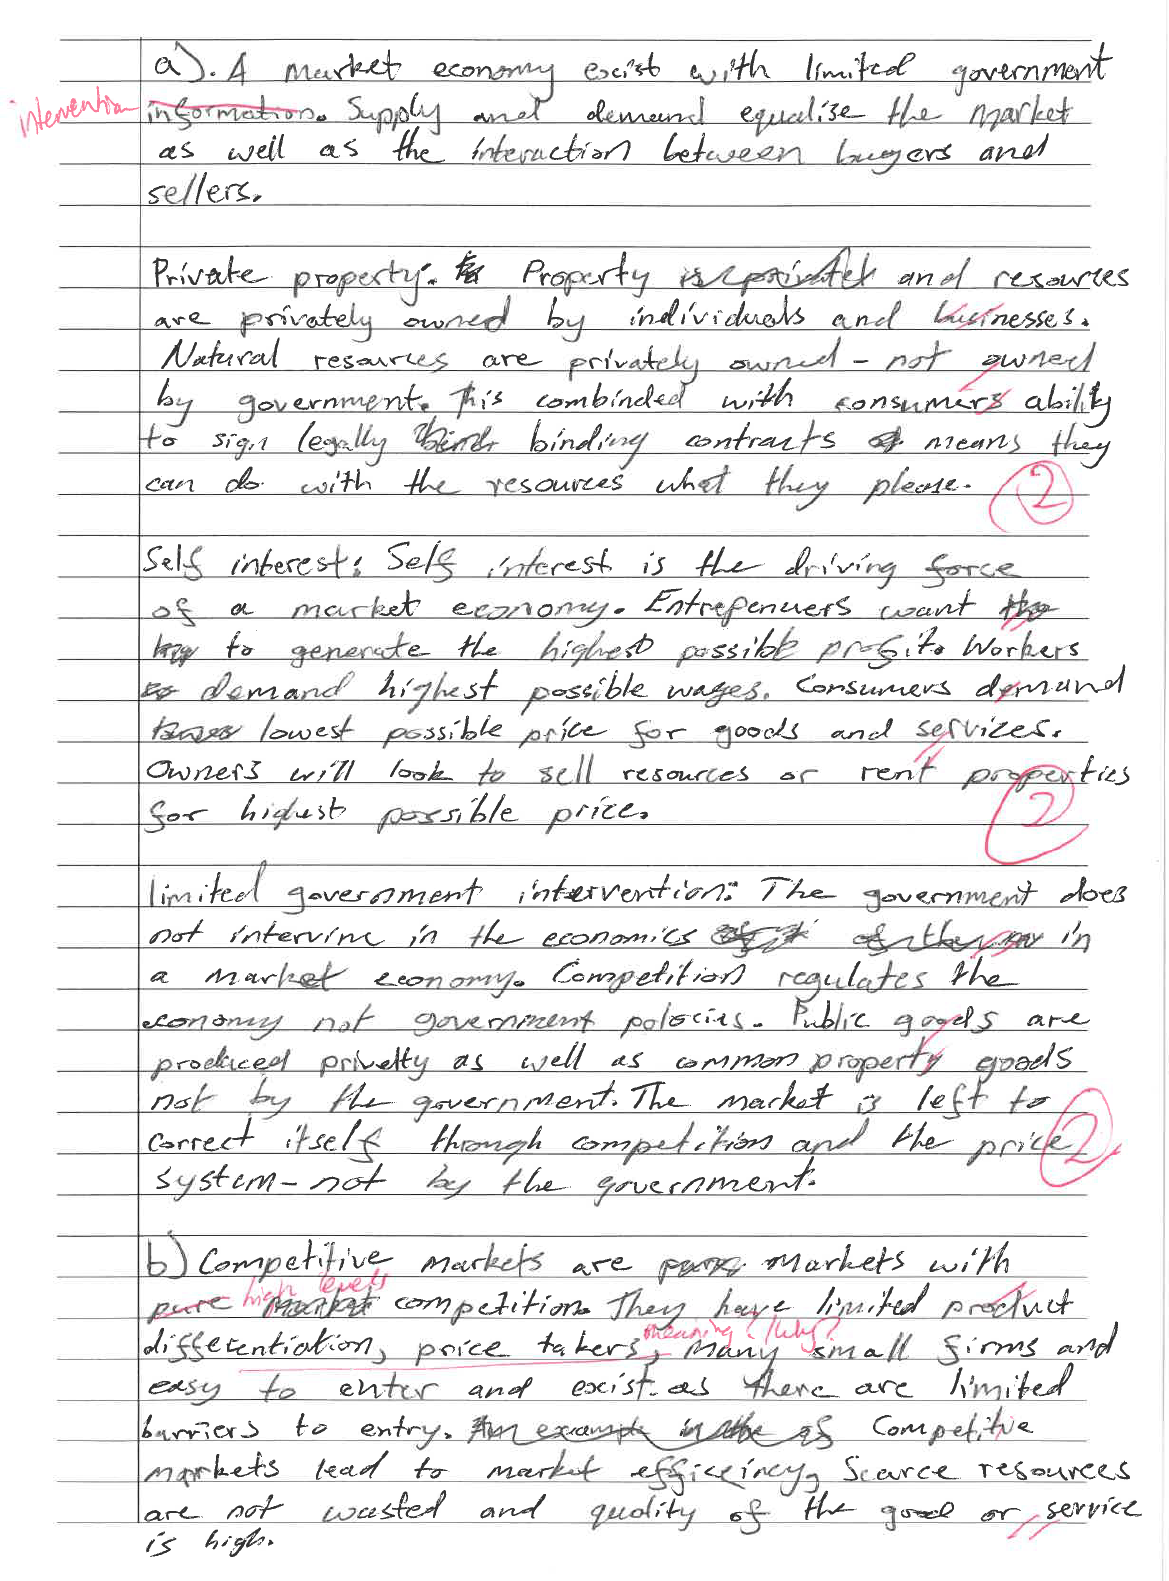 a). A market economy exist with limited government
intervention
information. Supply and demand equalise the market
as well as the interaction between buyers and
sellers.
Private property: Property is privatet and resources
are privately owned by individuals and businesses.
Natural resources are privately owned - not owned
by government. This combinded with consumers ability
to sign legally bind binding contracts of means they
can do with the resources what they please.
2
Self interest: Self interest is the driving force
of a market economy. Entrepenuers want the
to generate the highest possible profit. Workers
demand highest possible wages. Consumers demand
lowest possible price for goods and services.
Owners will look to sell resources or rent properties
for highest possible price.
2
limited government intervention: The government does
not intervine in the economics of in
a market economy. Competition regulates the
economy not government polocies. Public goods are
produced privetly as well as common property goods
not by the government. The market is left to
correct itself through competition and the price
2
system - not by the government.
b) Competitive markets are pure markets with
high levels
pure market competition. They have limited product
meaning? / Why?
differentiation, price takers, many small firms and
easy to enter and exist as there are limited
barriers to entry. An example in the of Competitive
markets lead to market efficeincy, Scarce resources
are not wasted and quality of the good or service
is high.